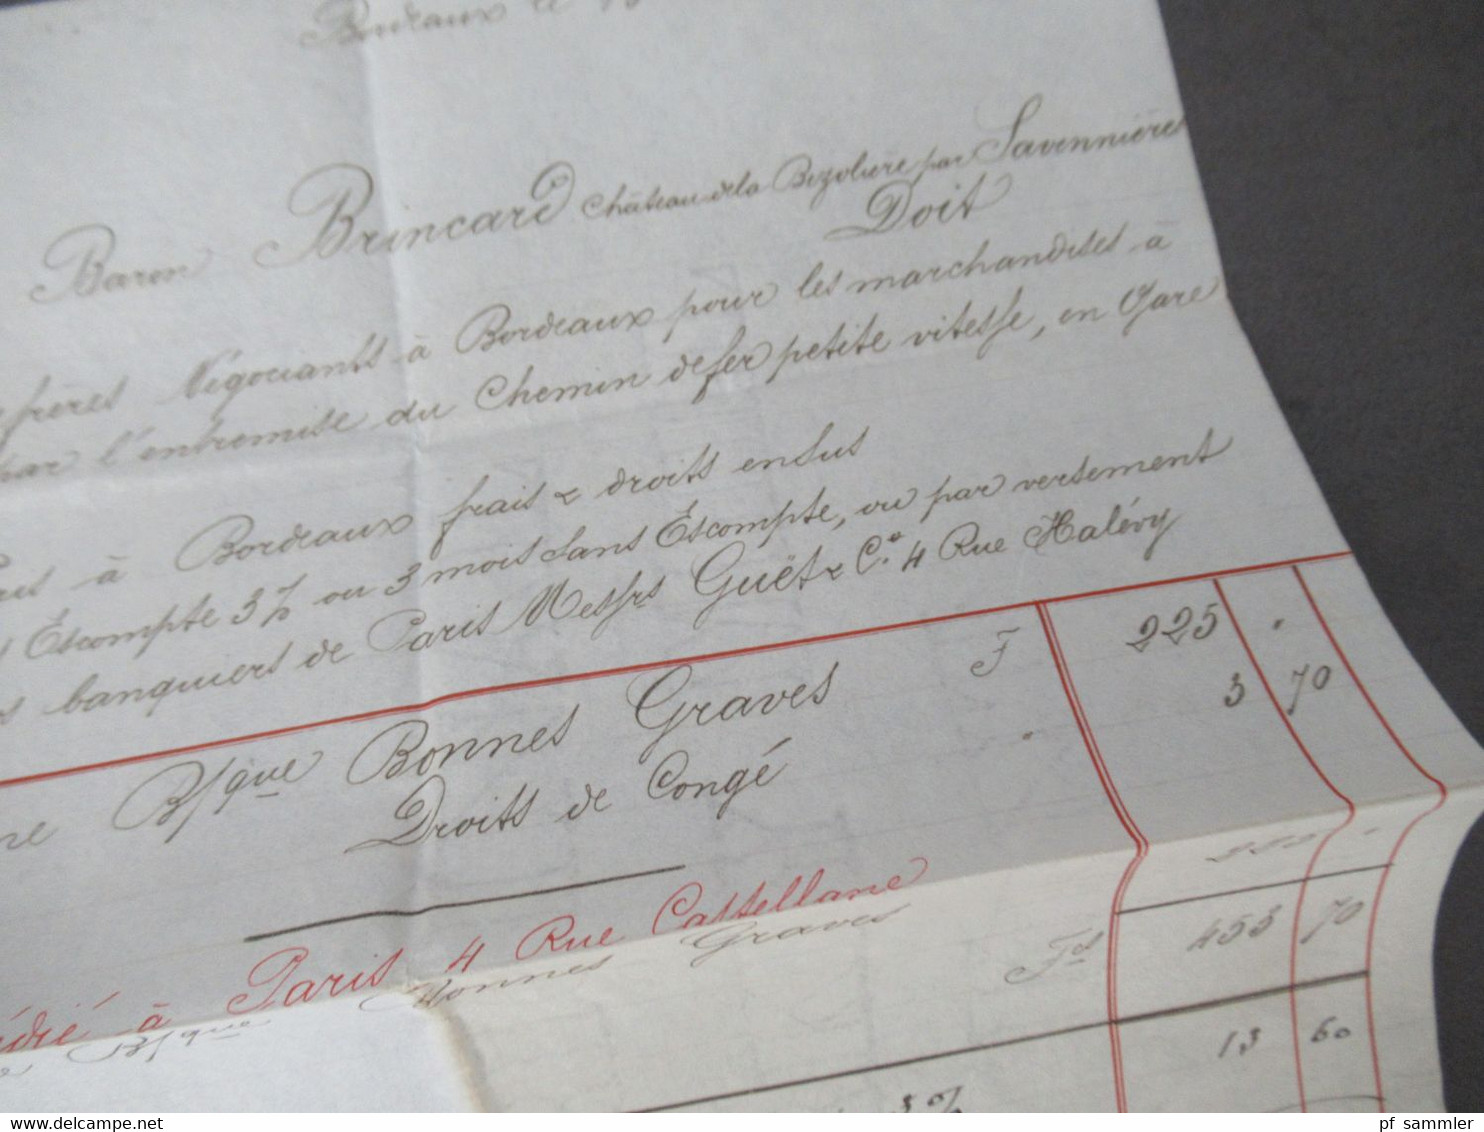 Bordeaux le
Baron Brincard Château de la Bizolière par Savennières
Doit
frères Négociants à Bordeaux pour les marchandises à
par l'entremise du Chemin de fer petite vitesse, en Gare
à Bordeaux frais & droits en sus
Escompte 3% ou 3 mois sans Escompte, ou par versement
banquiers de Paris Messrs Guët & Cie. 4 Rue Halévy
Bsque Bonnes Graves F 225 .
Droits de Congé . 3 70
à Paris 4 Rue Castellane
Bsque Bonnes Graves
Fs 453 70
13 60
3%
www.delcampe.net
pf_sammler